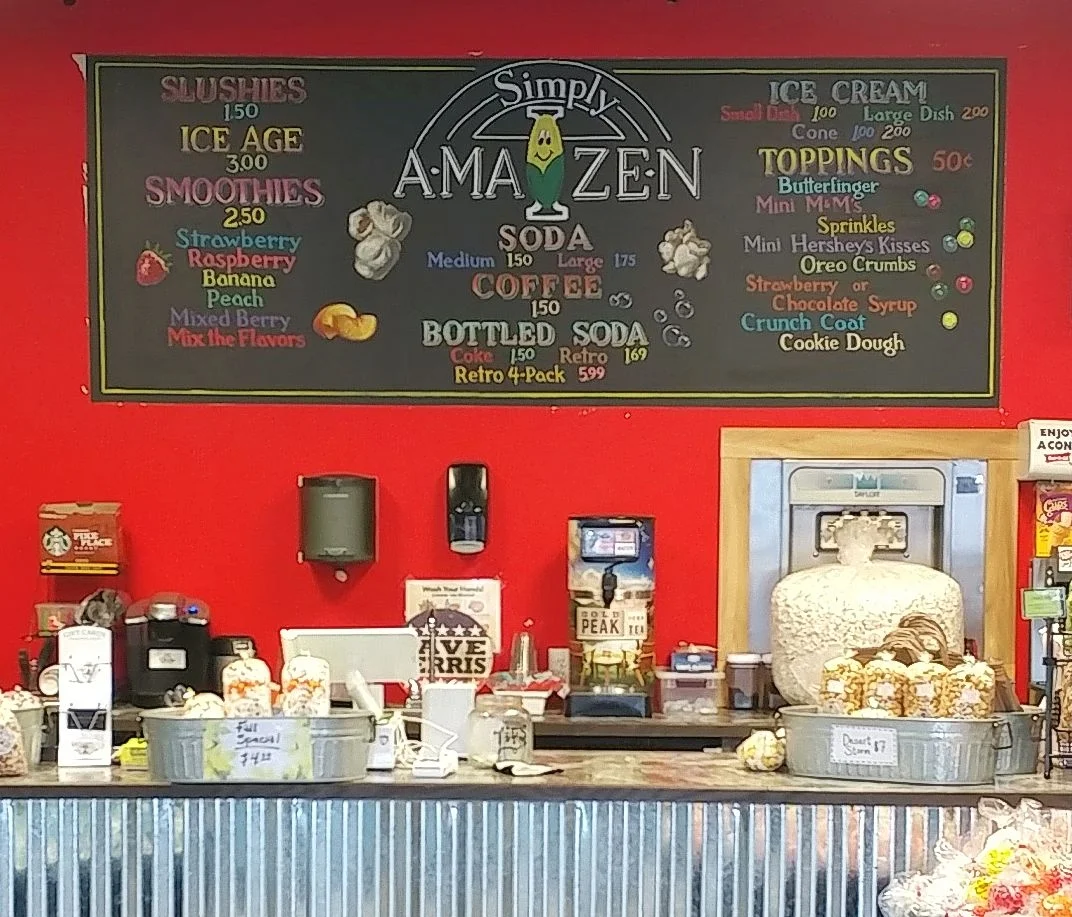 SLUSHIES
1.50
ICE AGE
3.00
SMOOTHIES
2.50
Strawberry
Raspberry
Banana
Peach
Mixed Berry
Mix the Flavors
Simply
A·MA ZE·N
SODA
Medium 1.50 Large 1.75
COFFEE
1.50
BOTTLED SODA
Coke 1.50 Retro 1.69
Retro 4-Pack 5.99
ICE CREAM
Small Dish 1.00 Large Dish 2.00
Cone 1.00 2.00
TOPPINGS 50¢
Butterfinger
Mini M&M's
Sprinkles
Mini Hershey's Kisses
Oreo Crumbs
Strawberry or
Chocolate Syrup
Crunch Coat
Cookie Dough
ENJOY
A CON
PIKE PLACE
GIFT CARDS
Wash Your Hands!
AVE
ERRIS
GOLD
PEAK
TEA
TAYLOR
CUPS
Fall
Special
$4.00
TIPS
Desert
Storm $7